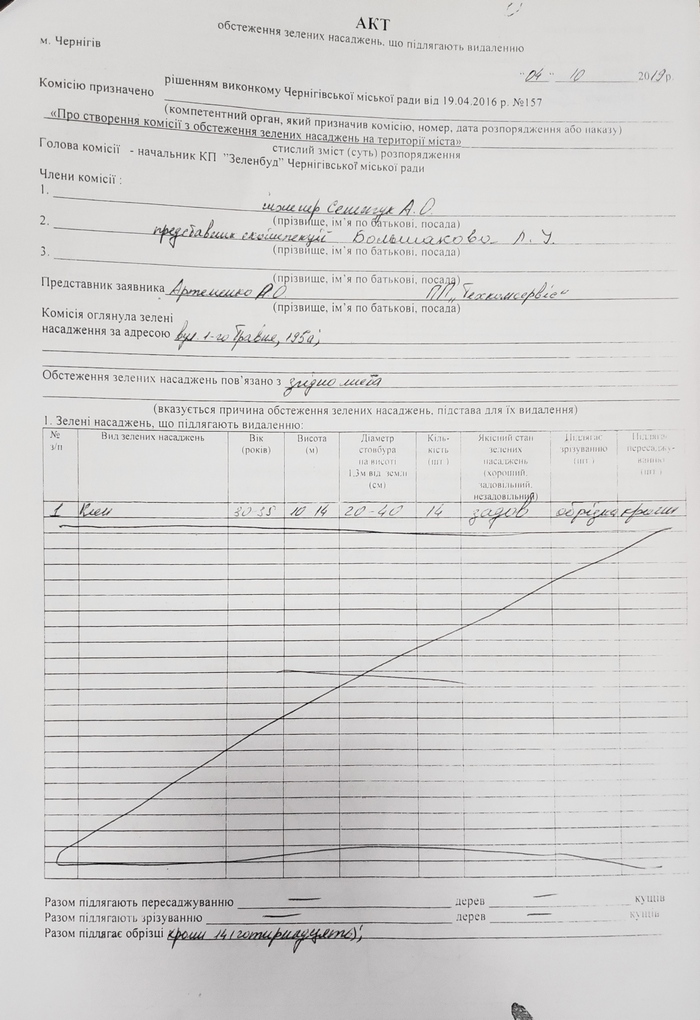 АКТ
обстеження зелених насаджень, що підлягають видаленню
м. Чернігів
"04" 10 2019р.
Комісію призначено рішенням виконкому Чернігівської міської ради від 19.04.2016 р. №157
(компетентний орган, який призначив комісію, номер, дата розпорядження або наказу)
«Про створення комісії з обстеження зелених насаджень на території міста»
стислий зміст (суть) розпорядження
Голова комісії - начальник КП "Зеленбуд" Чернігівської міської ради
Члени комісії :
1. інженер А.О.
(прізвище, ім'я по батькові, посада)
2. представник екоінспекції Большакова Л. У.
(прізвище, ім'я по батькові, посада)
3.
(прізвище, ім'я по батькові, посада)
Представник заявника Артеменко А О ПП „Техкомсервіс"
(прізвище, ім'я по батькові, посада)
Комісія оглянула зелені
насадження за адресою вул. 1-го Травня, 195а;
Обстеження зелених насаджень пов'язано з згідно листа
(вказується причина обстеження зелених насаджень, підстава для їх видалення)
1. Зелені насаджень, що підлягають видаленню:
№ з/п Вид зелених насаджень Вік (років) Висота (м) Діаметр стовбура на висоті 1.3м від землі (см) Кіль-кість (шт.) Якісний стан зелених насаджень (хороший, задовільний, незадовільний) Підлягає зрізуванню (шт.) Підлягає пересаджу-ванню (шт.)
1 Клен 30-35 10-14 20-40 14 задов обрізка крони
Разом підлягають пересаджуванню — дерев — кущів
Разом підлягають зрізуванню — дерев — кущів
Разом підлягає обрізці крони 14 (чотирнадцять);